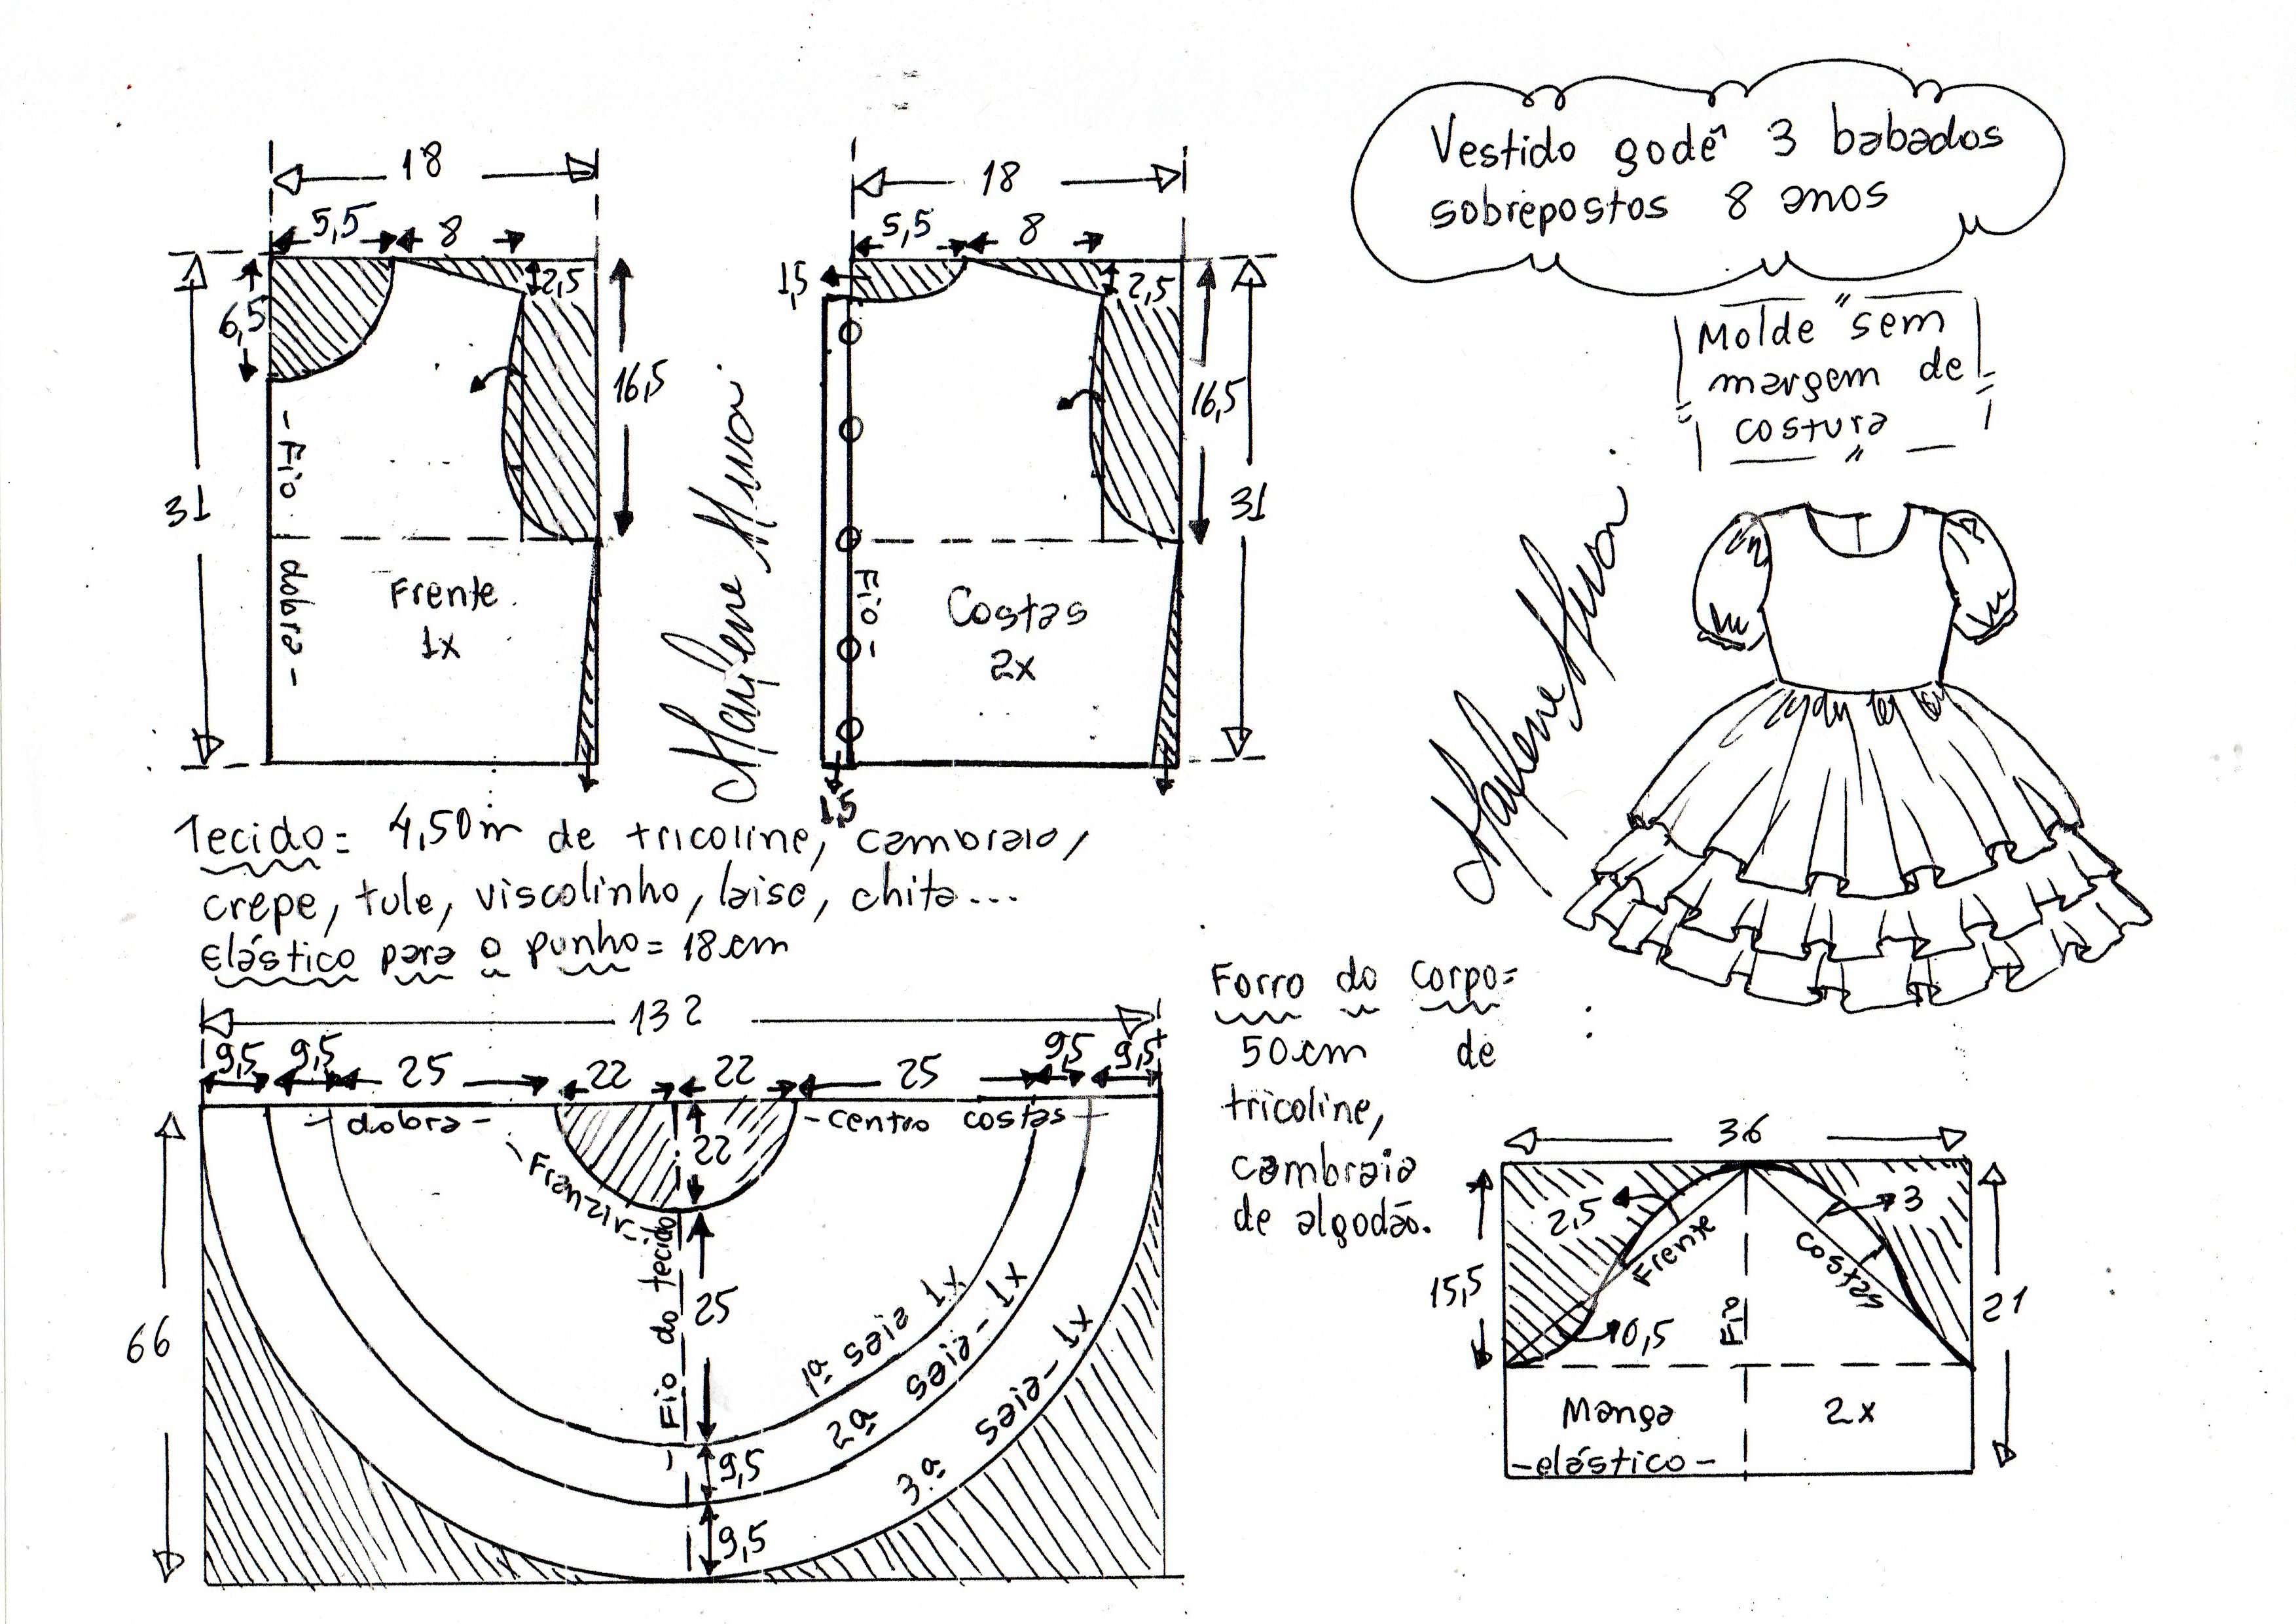 Vestido godê 3 babados
sobrepostos 8 anos
Molde "sem
margem de
costura"
18
5,5 8
2,5
6,5
16,5
31
- Fio dobra -
Frente
1x
Marlene Mukai
18
5,5 8
1,5
2,5
16,5
31
Fio -
Costas
2x
1,5
Marlene Mukai
Tecido = 4,50m de tricoline, cambraia,
crepe, tule, viscolinho, laise, chita...
elástico para o punho = 18cm
132
9,5 9,5 25 22 22 25 9,5 9,5
- dobra -
- centro costas -
22
- Franzir -
- Fio do tecido
25
66
1ª saia 1x
2ª saia - 1x
3ª saia - 1x
9,5
9,5
Forro do corpo =
50cm de
tricoline,
cambraia
de algodão.
36
2,5
3
Frente
Costas
15,5
21
Fio
0,5
Manga 2x
- elástico -